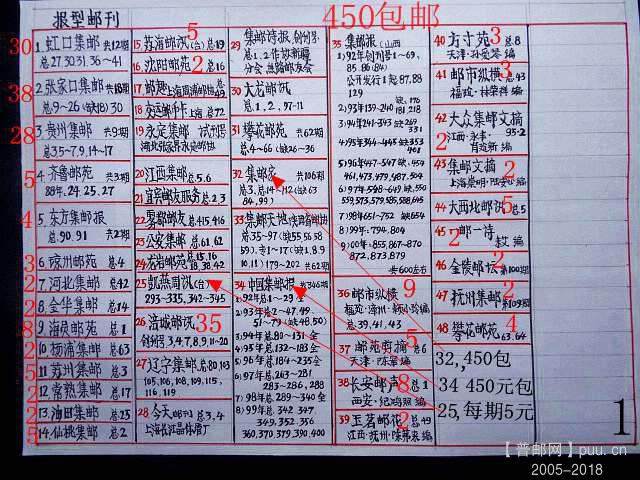 报型邮刊
450包邮
30
1.虹口集邮 共12期
总27,30,31,36~41
38
2.张家口集邮 共18期
总9~26(缺18)30
28
3.贵州集邮 共9期
总35~7,9,14~17
4
4.齐鲁邮苑 共3期
88年,24,25,27
4
5.东方集邮报
总90,91 共2期
3
6.琼州邮苑 总4
2
7.河北集邮 总42
2
8.金华集邮 总14
2
9.海员邮苑 总1
2
10.杨浦集邮 总63
3
11.苏州集邮 总3
2
12.常熟集邮 总17
2
13.海田集邮 总25
5
14.仙桃集邮 总2
5
15.苏海邮汎(台)总19
2
16.沈阳邮苑 总16
17.邮趣
18.交运邮卡 上海 总72
19.永定集邮 试刊号
20.江西集邮 总5.6
21.宜宾邮友服务 总2.3
22.雾都邮友 总415,416
23.公安集邮 总61.62
24.龙岩邮苑 总15.16
18.38.42
25.凱燕周讯(台)
293~335, 342~345
26.涪城邮汎
35
创刊号,3,4,7,8,9,11~20
27.辽宁集邮 总80,103
105,106,108,109,115,
116,119
28.今天(邮刊)总3,4
29.集邮诗报,创刊号
总1,2.
30.大龙邮讯
总1,2,97~11
31.攀花邮苑 共62期
总4~66(缺26~36
32.集邮家 共106期
总3,总14~112(缺63
84,99)
33.集邮天地
总35~97(缺55.56.58
10,11)179~202 共62期
34.中国集邮报 共346期
1)92年总1~29全
2)93年总2~47.49.
51~79(缺48.50)
3)94年总80~131全
4)95年总132~183全
5)96年总184~235全
6)97年总263~281
283~286,288
7)98年总289~340全
8)99年总342 347
349,352,356
360,370,379,390,400
35.集邮报(山西
1)92年创刊号1~69,
85,86(84)
公开发行1至87,88
129
2)93年139~240 缺176
181,218
3)94年241~343
4)95年344~445 缺353
5)96年447~547 缺454
461,473,482,493,497
6)97年548~649 缺550
559,573,579,585,588,645
7)98年651~752 缺654
8)99年:794,804
9)00年:855,867~870
872,873,879
共600左右
36.邮市纵横
9
总39,41,43
37.邮苑剪摘 总6
5
天津·陈景编
38.长安邮声 总1
8
西安·纪鸿照编
39.玉茗邮花 总49
2
40.方寸苑 总8
3
天津·孙爱琴编
41.邮市纵横 总43
3
福琉·林荣祥编
42.大众集邮文摘
2
江西·永丰· 95·2
43.集邮文摘
2
44.大西北邮讯 总5
5
45.邮一诗
2
46.金陵邮坛 第100期
2
47.抚州集邮 第109期
2
48.攀花邮苑
4
63.64
32,,450包
34 450元包
25,每期5元
1
【普邮网】puu.cn
2005-2018